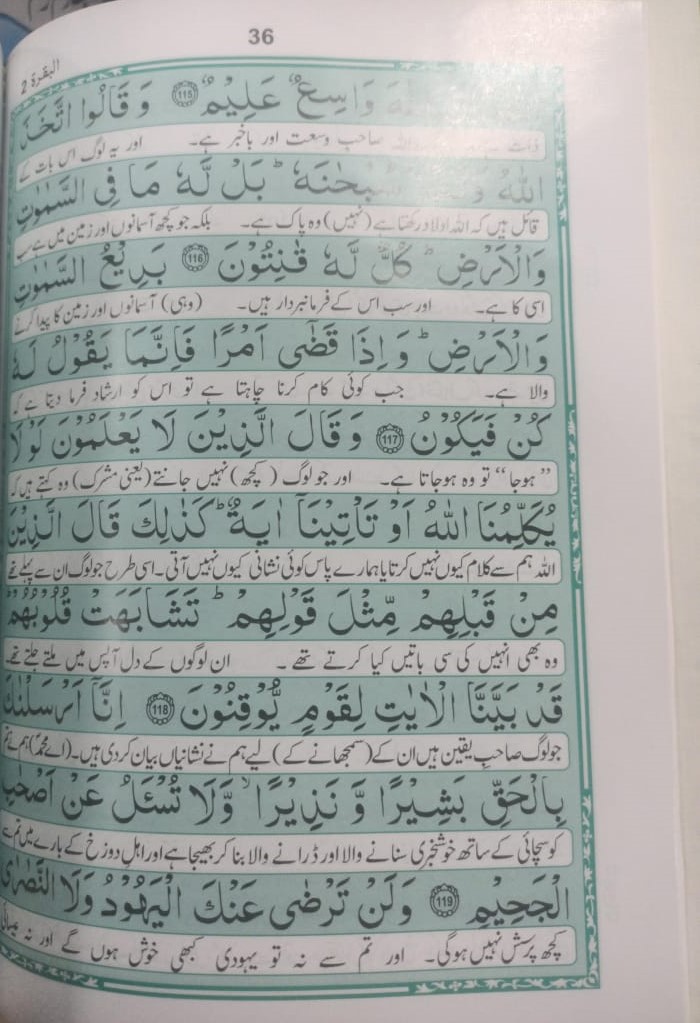 36
البقرة 2
وَاسِعٌ عَلِيْمٌ ﴿115﴾ وَ قَالُوا اتَّخَذَ
صاحب وسعت اور باخبر ہے۔ اور یہ لوگ اس بات کے
اللّٰهُ سُبْحٰنَهٗ ؕ بَلْ لَّهٗ مَا فِي السَّمٰوٰتِ
قائل ہیں کہ اللہ اولاد رکھتا ہے (نہیں) وہ پاک ہے۔ بلکہ جو کچھ آسمانوں اور زمین میں ہے سب
وَالْاَرْضِ ؕ كُلٌّ لَّهٗ قٰنِتُوْنَ ﴿116﴾ بَدِيْعُ السَّمٰوٰتِ
اسی کا ہے۔ اور سب اس کے فرمانبردار ہیں۔ (وہی) آسمانوں اور زمین کا پیدا کرنے
وَالْاَرْضِ ؕ وَاِذَا قَضٰٓى اَمْرًا فَاِنَّمَا يَقُوْلُ لَهٗ
والا ہے۔ جب کوئی کام کرنا چاہتا ہے تو اس کو ارشاد فرما دیتا ہے کہ
كُنْ فَيَكُوْنُ ﴿117﴾ وَقَالَ الَّذِيْنَ لَا يَعْلَمُوْنَ لَوْلَا
”ہوجا“ تو وہ ہوجاتا ہے۔ اور جو لوگ (کچھ) نہیں جانتے (یعنی مشرک) وہ کہتے ہیں کہ
يُكَلِّمُنَا اللّٰهُ اَوْ تَاْتِيْنَآ اٰيَةٌ ؕ كَذٰلِكَ قَالَ الَّذِيْنَ
اللہ ہم سے کلام کیوں نہیں کرتا یا ہمارے پاس کوئی نشانی کیوں نہیں آتی۔ اسی طرح جو لوگ ان سے پہلے تھے
مِنْ قَبْلِهِمْ مِّثْلَ قَوْلِهِمْ ؕ تَشَابَهَتْ قُلُوْبُهُمْ ؕ
وہ بھی انہیں کی سی باتیں کیا کرتے تھے۔ ان لوگوں کے دل آپس میں ملتے جلتے تھے۔
قَدْ بَيَّنَّا الْاٰيٰتِ لِقَوْمٍ يُّوْقِنُوْنَ ﴿118﴾ اِنَّآ اَرْسَلْنٰكَ
جو لوگ صاحب یقین ہیں ان کے (سمجھانے کے) لیے ہم نے نشانیاں بیان کردی ہیں۔ (اے محمدؐ) ہم نے تم
بِالْحَقِّ بَشِيْرًا وَّ نَذِيْرًا ۙ وَّلَا تُسْـَٔلُ عَنْ اَصْحٰبِ
کو سچائی کے ساتھ خوشخبری سنانے والا اور ڈرانے والا بنا کر بھیجا ہے اور اہل دوزخ کے بارے میں تم سے
الْجَحِيْمِ ﴿119﴾ وَلَنْ تَرْضٰى عَنْكَ الْيَهُوْدُ وَلَا النَّصٰرٰى
کچھ پرسش نہیں ہوگی۔ اور تم سے نہ تو یہودی کبھی خوش ہوں گے اور نہ عیسائی